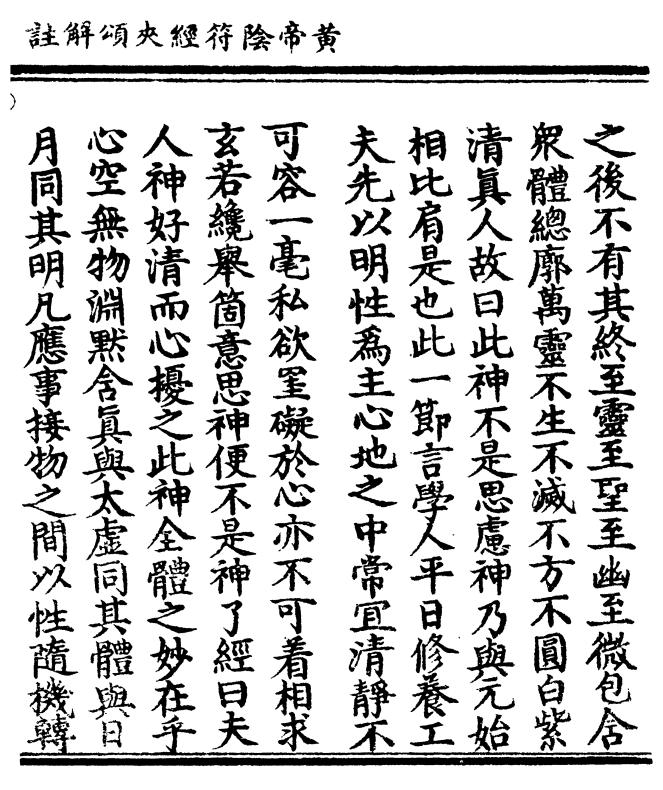 黃帝陰符經夾頌解註
之後不有其終至靈至聖至幽至微包含
衆體總廓萬靈不生不滅不方不圓白紫
清眞人故曰此神不是思慮神乃與元始
相比肩是也此一節言學人平日修養工
夫先以明性爲主心地之中常冝清靜不
可容一毫私欲罣礙於心亦不可着相求
玄若纔舉箇意思神便不是神了經曰夫
人神好清而心擾之此神全體之妙在乎
心空無物淵默含眞與太虛同其體與日
月同其明凡應事接物之間以性隨機轉